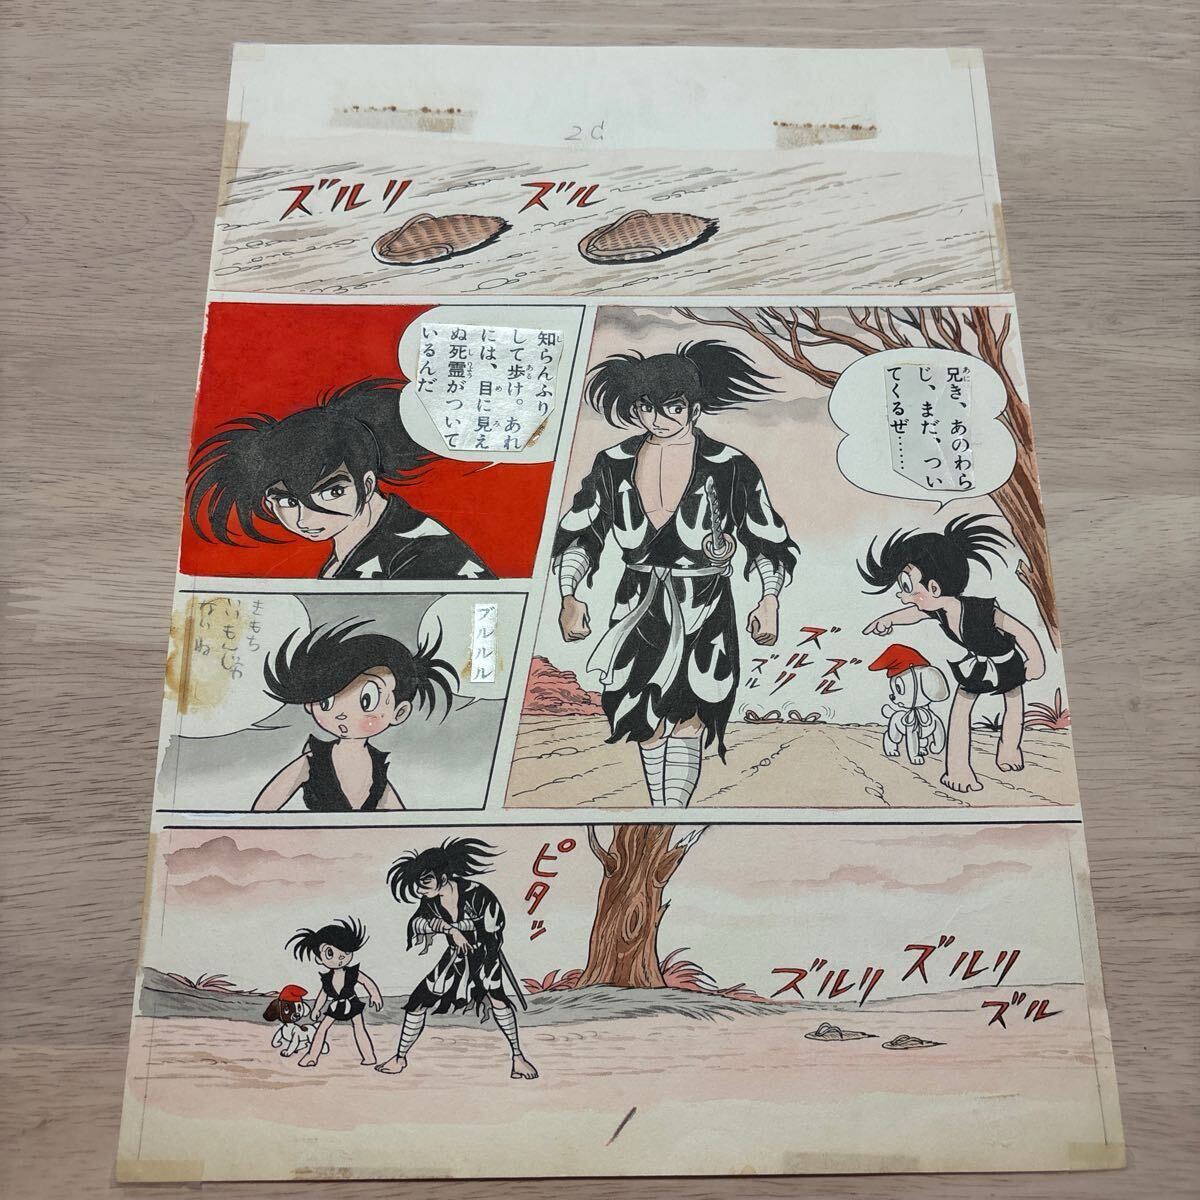 2d
ズルリ
ズル
兄き、あのわら
あに
じ、まだ、つい
てくるぜ……
ズル
ズルリ
ズル
ズル
知らんふり
し
して歩け。あれ
ある
には、目に見え
め み
ぬ死霊がついて
しりょう
いるんだ
ブルルル
きもち
いもんじゃ
ないね
ピタッ
ズルリ
ズルリ
ズル
1